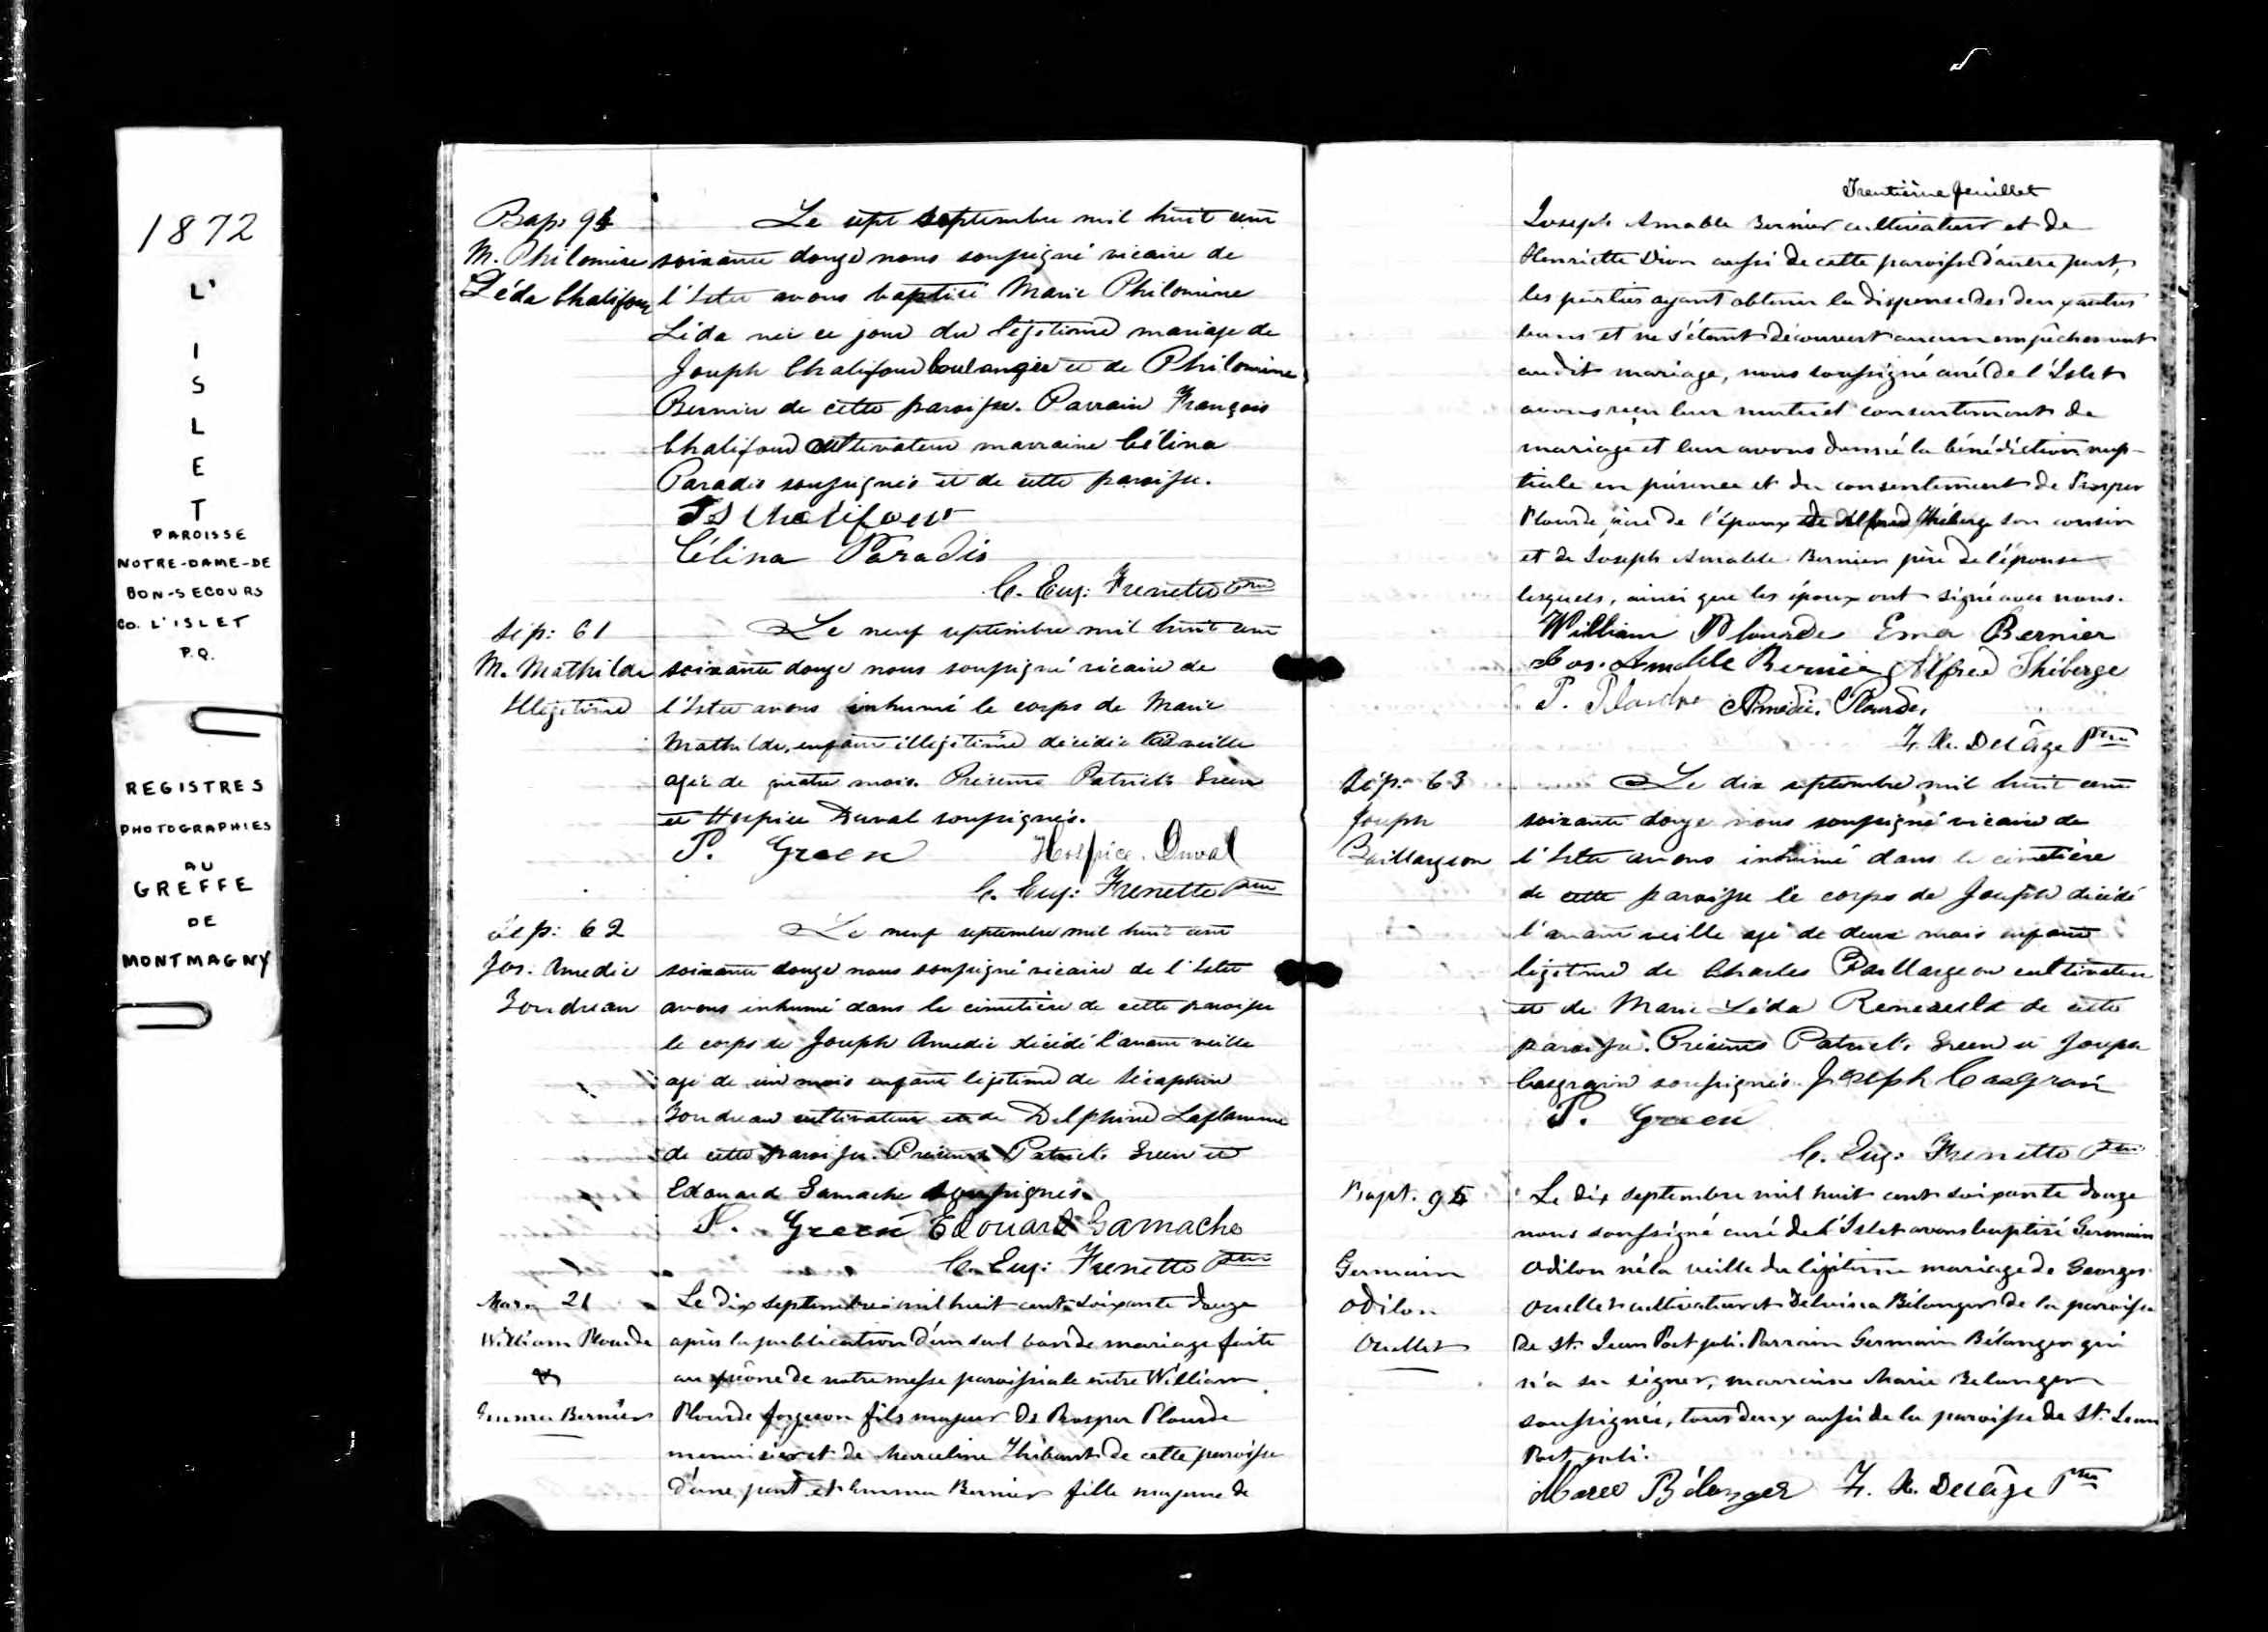 1872
L'
I
S
L
E
T
PAROISSE
NOTRE-DAME-DE
BON-SECOURS
CO. L'ISLET
P.Q.
REGISTRES
PHOTOGRAPHIES
AU
GREFFE
DE
MONTMAGNY
Bap. 94
M. Philomine
Léda Chalifour
Le sept septembre mil huit cent
soixante douze nous soussigné vicaire de
l'Islet avons baptisé Marie Philomine
Léda née ce jour du légitime mariage de
Joseph Chalifour boulanger et de Philomine
Bernier de cette paroisse. Parrain François
Chalifour cultivateur marraine Célina
Paradis soussignés et de cette paroisse.
Fs Chalifour
Célina Paradis
C. Eug: Frenette Ptre
Sép: 61
M. Mathilde
Illégitime
Le neuf septembre mil huit cent
soixante douze nous soussigné vicaire de
l'Islet avons inhumé le corps de Marie
Mathilde, enfant illégitime décédée la veille
agée de quatre mois. Présents Patrick Green
et Hospice Duval soussignés.
P. Green Hospice Duval
C. Eug: Frenette Ptre
Sép: 62
Jos. Amedie
Boudreau
Le neuf septembre mil huit cent
soixante douze nous soussigné vicaire de l'Islet
avons inhumé dans le cimetière de cette paroisse
le corps de Joseph Amedie décédé l'avant veille
agé de un mois enfant légitime de Séraphin
Boudreau cultivateur et de Delphine Laflamme
de cette paroisse. Présents Patrick Green et
Edouard Gamache soussignés.
P. Green Edouard Gamache
C. Eug: Frenette Ptre
Mari 21
William Plourde
&
Emma Bernier
Le dix septembre mil huit cent soixante douze
après la publication d'un seul ban de mariage faite
au prône de notre messe paroissiale entre William
Plourde forgeron fils majeur de Prosper Plourde
menuisier et de Marceline Thibault de cette paroisse
d'une part et Emma Bernier fille mageure de
Trentième feuillet
Joseph Amable Bernier cultivateur et de
Henriette Dion aussi de cette paroisse d'autre part,
les parties ayant obtenu la dispense des deux autres
bans et ne s'étant découvert aucun empêchement
audit mariage, nous soussigné curé de l'Islet
avons reçu leur mutuel consentement de
mariage et leur avons donné la bénédiction nup-
tiale en présence et du consentement de Prosper
Plourde père de l'époux de Alfred Théberge son cousin
et de Joseph Amable Bernier père de l'épouse
lesquels, ainsi que les époux ont signé avec nous.
William Plourde Ema Bernier
Jos. Amable Bernier Alfred Théberge
P. Plourde Amédée Plourde
F. X. Delâge Ptre
Sép: 63
Joseph
Baillargeon
Le dix septembre mil huit cent
soixante douze nous soussigné vicaire de
l'Islet avons inhumé dans le cimetière
de cette paroisse le corps de Joseph décédé
l'avant veille agé de deux mois enfant
légitime de Charles Baillargeon cultivateur
et de Marie Léda Reneault de cette
paroisse. Présents Patrick Green et Joseph
Casgrain soussignés. Joseph Casgrain
P. Green
C. Eug: Frenette Ptre
Bapt. 95
Germain
Odilon
Ouellet
Le dix septembre mil huit cent soixante douze
nous soussigné curé de l'Islet avons baptisé Germain
Odilon né la veille du légitime mariage de Georges
Ouellet cultivateur et Delvina Bélanger de la paroisse
de St. Jean Port joli. Parrain Germain Bélanger qui
n'a su signer, marraine Marie Belanger
soussignée, tous deux aussi de la paroisse de St. Jean
Port joli.
Marie Bélanger F. X. Delâge Ptre